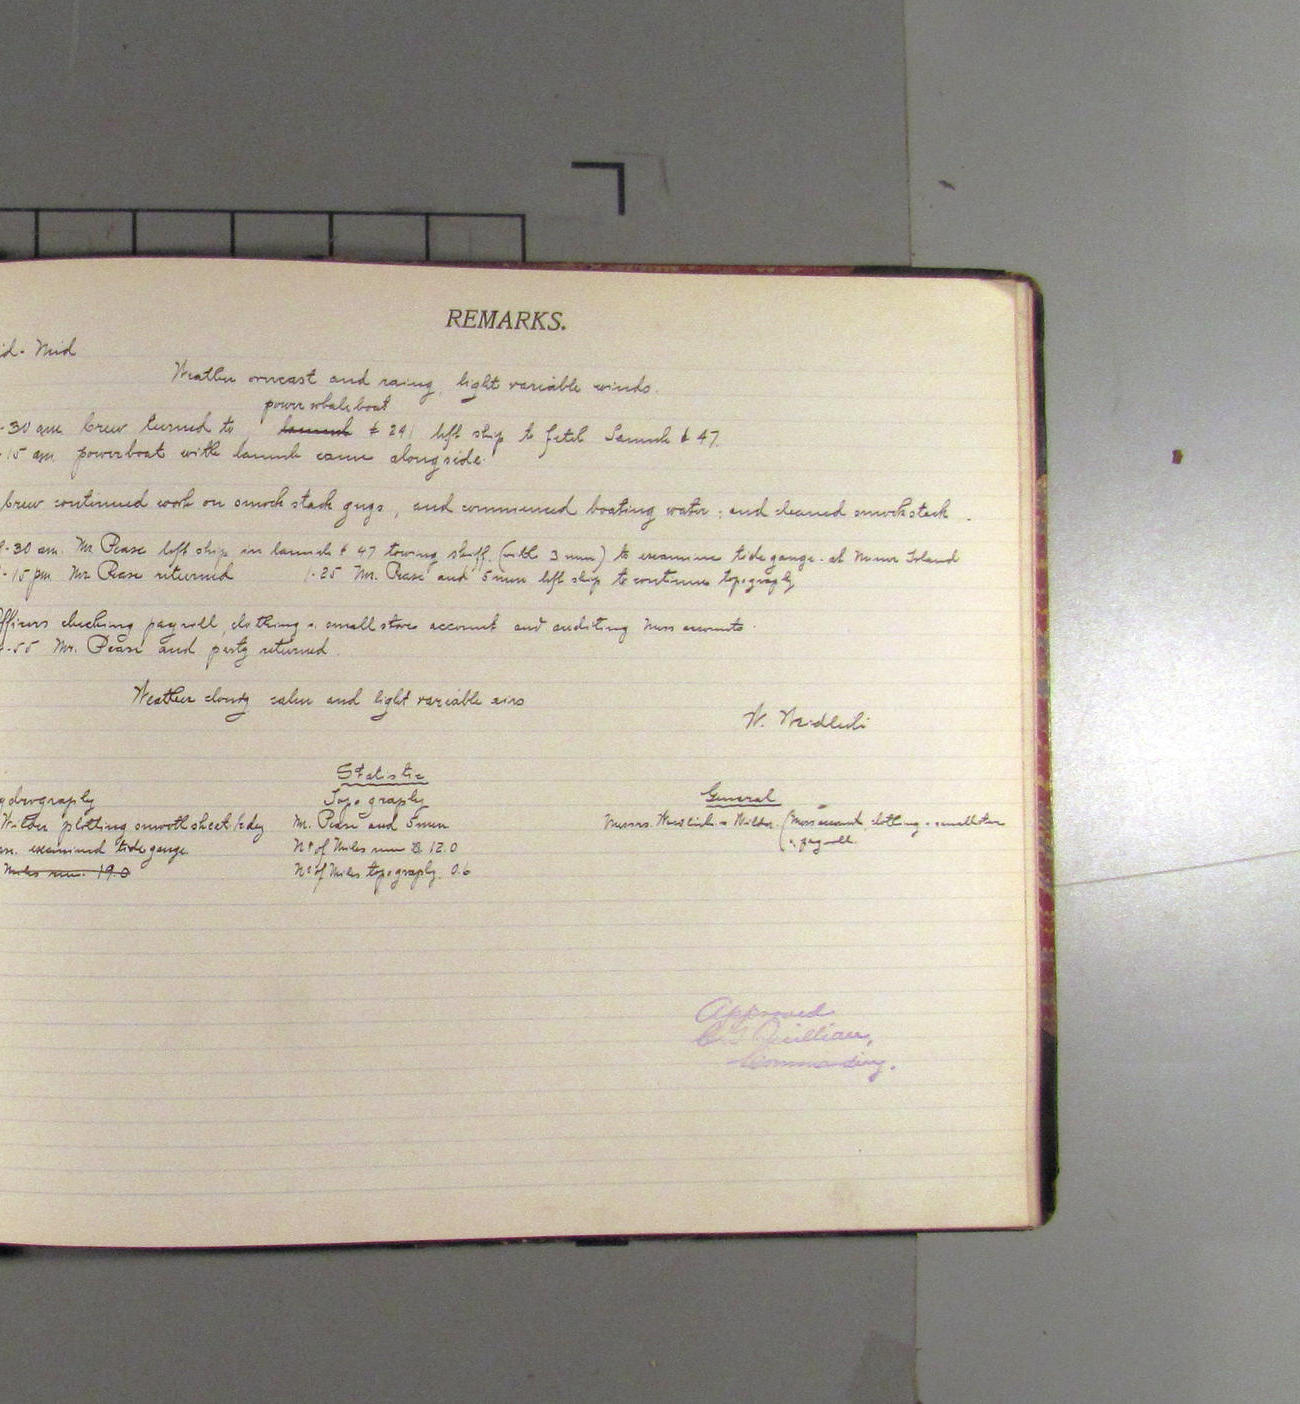 REMARKS.
id - Mid
Weather overcast and rainy, light variable winds.
power whaleboat
-30 am Crew turned to launch # 241 left ship to fetch Launch # 47.
-15 am powerboat with launch came alongside.
Crew continued work on smock stack guys, and commenced boating water; and cleaned smockstack.
-30 am. Mr Pease left ship in launch # 47 towing skiff, (with 3 men) to examine tide gauge at Island
-15 pm Mr Pease returned 1-25 Mr. Pease and 5 men left ship to continue topography
Officers checking payroll, clothing & small stores account and auditing Mess accounts.
-55 Mr. Pease and party returned.
Weather cloudy calm and light variable airs
W. Weidlich
Statistic
ydrography Topography General
Wilder plotting smooth sheet Mr. Pease and 5 men Messrs. Weidlich & Wilder. (Mess account, clothing & small stores
examined tide gauge No of Miles run 12.0 & payroll.
Miles run 19.0 No of Miles topography. 0.6
Approved
Quillian,
Commanding.